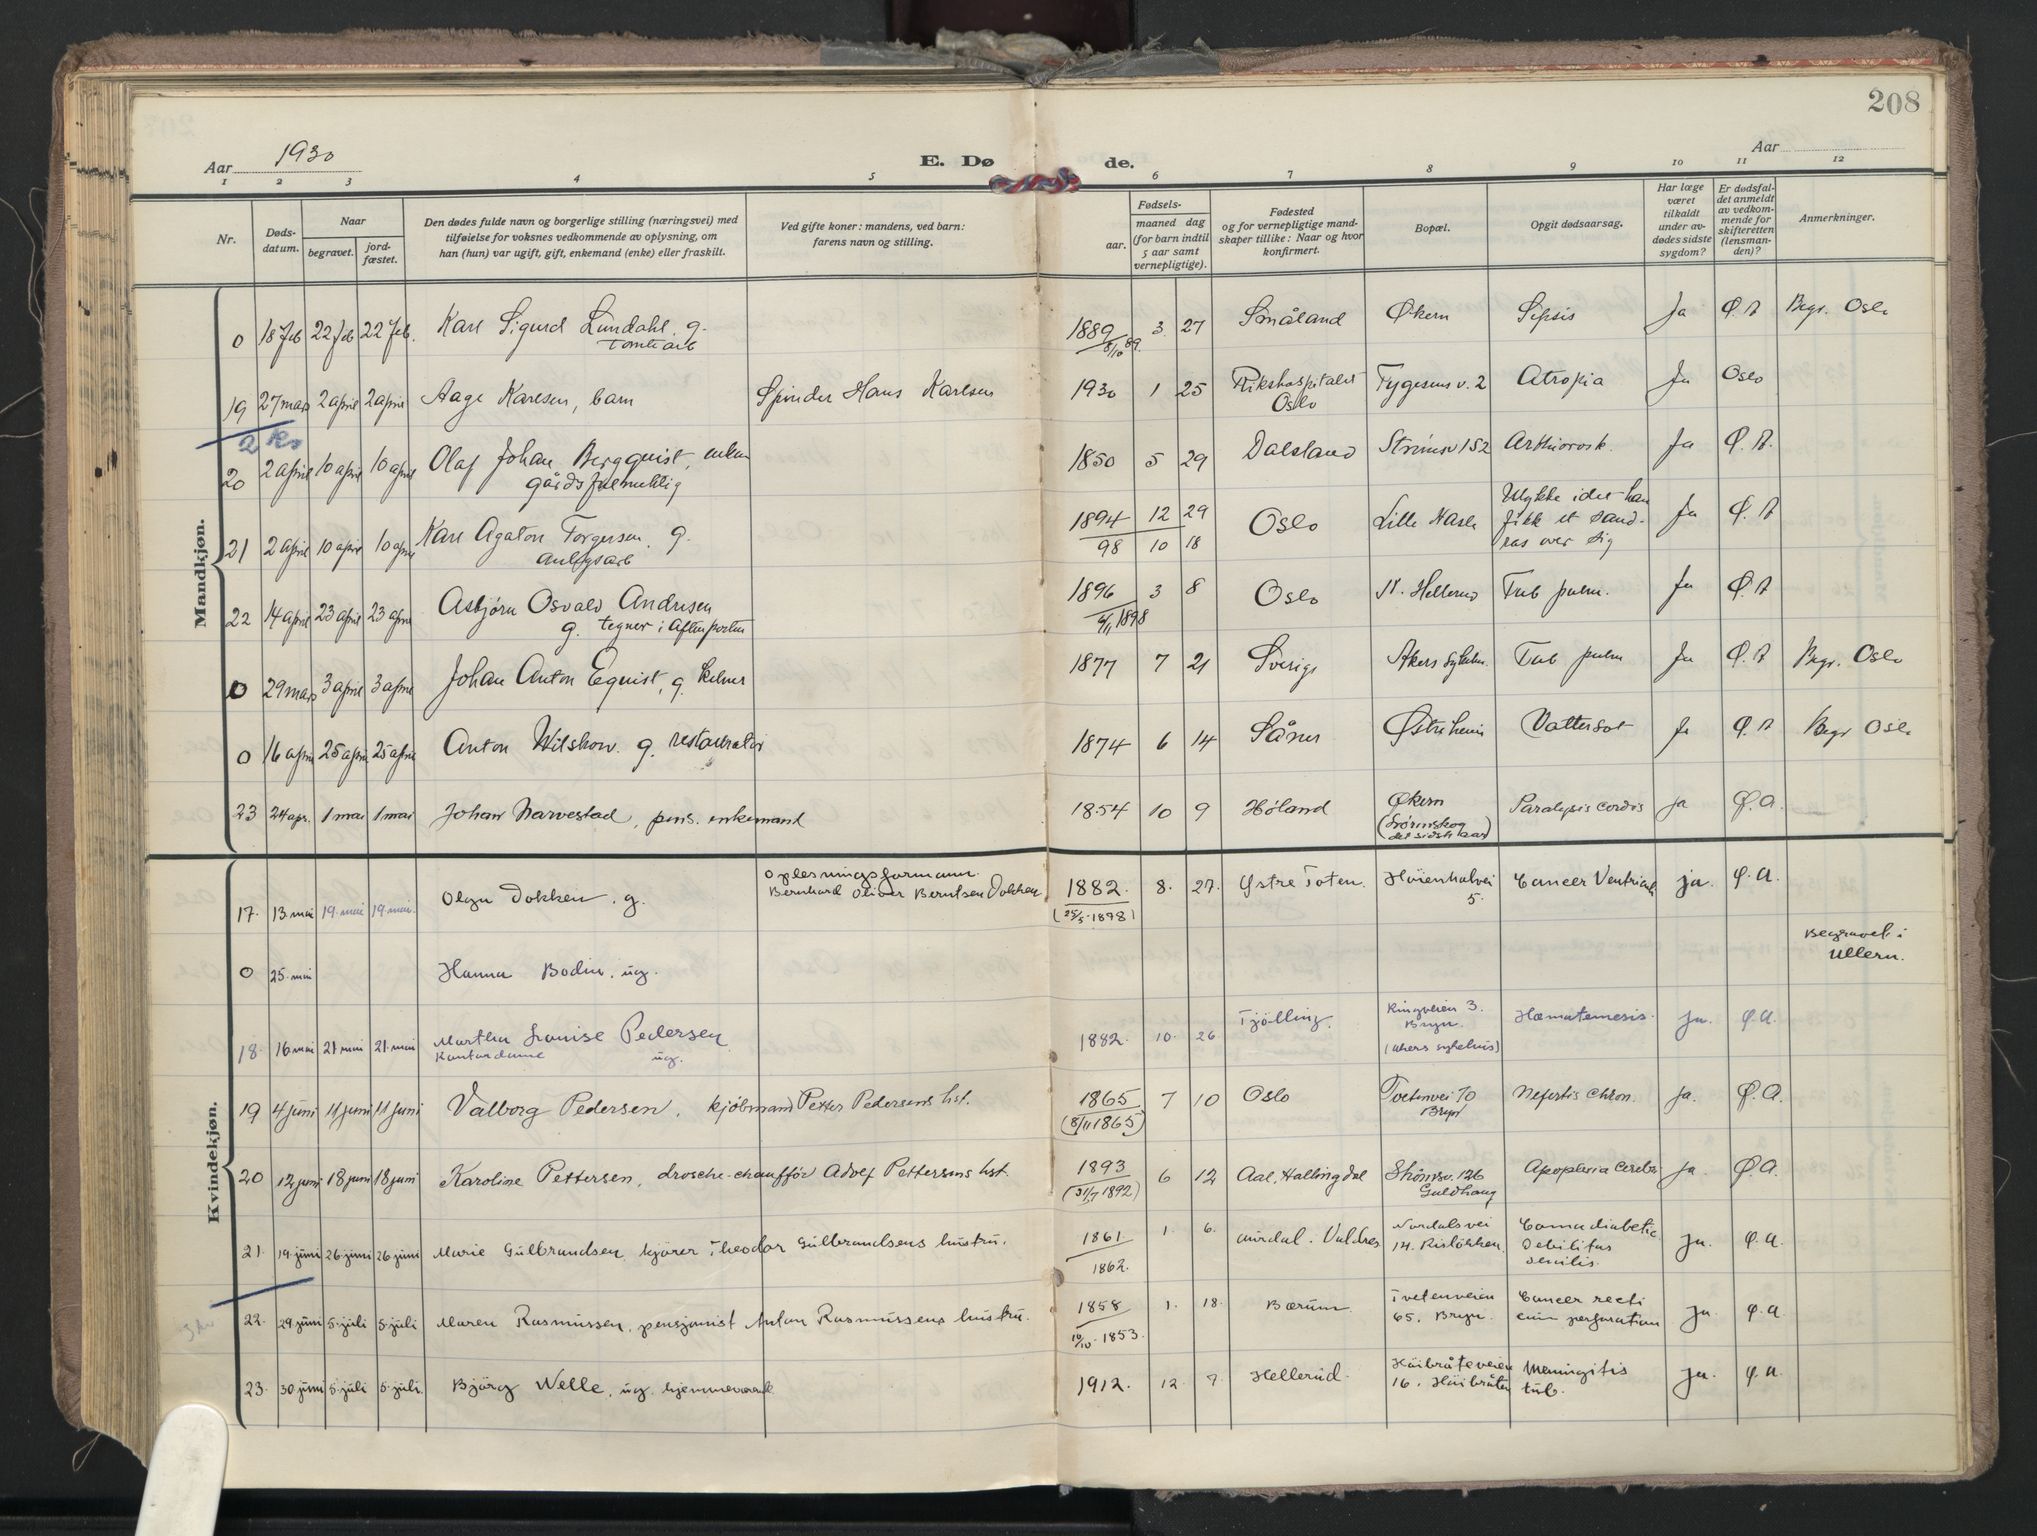 208
Aar 1930
E. Dø de.
Aar
1 2 3 4 5 6 7 8 9 10 11 12
Nr.
Døds-
datum.
Naar
begravet.
jord-
fæstet.
Den dødes fulde navn og borgerlige stilling (næringsvei) med
tilføielse for voksnes vedkommende av oplysning, om
han (hun) var ugift, gift, enkemand (enke) eller fraskilt.
Ved gifte koner: mandens, ved barn:
farens navn og stilling.
Fødsels-
aar.
maaned dag
(for barn indtil
5 aar samt
vernepligtige).
Fødested
og for vernepligtige mand-
skaper tillike: Naar og hvor
konfirmert.
Bopæl.
Opgit dødsaarsag.
Har læge
været
tilkaldt
under av-
dødes sidste
sygdom?
Er dødsfal-
det anmeldt
av vedkom-
mende for
skifteretten
(lensman-
den)?
Anmerkninger.
Mandkjøn.
0 18 feb 22 feb 22 feb. Karl Sigurd Lundahl. g. 1889 3 27 Småland Økern Sepsis Ja Ø. A Begr. Oslo
Tomtearb 8/10 89.
19 27 mars 2 april 2 april Aage Karlsen, barn Spinder Hans Karlsen 1930 1 25 Rikshospitalet Tygesens v. 2 Atropia Ja Oslo
Oslo
20 2 april 10 april 10 april Olaf Johan Bergquist, enkem 1850 5 29 Dalsland Strømsv 152 Ja Ø. A.
gårdsfuldmektig
21 2 april 10 april 10 april Karl Agaton Torgersen. g. 1894 12 29 Oslo Lille Hasle Ulykke idet han Ja Ø. A
anlegsarb 98 10 18 fikk et sand-
ras over sig
22 14 april 23 april 23 april Asbjørn Osvald Andresen 1896 3 8 Oslo N. Hellerud Tub pulm. Ja Ø. A
g. tegner i Aftenposten 1898
0 29 mars 3 april 3 april Johan Anton Equist, g. kelner 1877 7 21 Sverige Akers sykehus. Tub pulm Ja Ø. A Begr. Oslo
0 16 april 25 april 25 april Anton Wilskow. g. restauratør 1874 6 14 Såner Østreheim Vattersot Ja Ø. A Begr Oslo
23 24 apr. 1 mai 1 mai Johan Narvestad, pens. enkemand 1854 10 9 Høland Økern Paralysis cordis ja Ø.A.
(Lørenskog
det sidste aar)
Kvindekjøn.
17. 13. mai 19. mai 19. mai. Olga Dokken. g. Oplesningsformann
Bernhard Oliver Berntsen Dokken 1882. 8. 27. Østre Toten. Høienhalvei Cancer Ventriculi ja. Ø.A.
(25/5-1878) 5.
0 25. mai Hanna Bodin. ug. Begravet i
Ullern.
18. 16 mai 21 mai 21. mai Martha Louise Pedersen 1882. 10. 26. Tjølling. Ringveien 3. Hæmatemesis. ja. Ø.A.
Kontordame ug. Bryn.
(Akers sykehus)
19 4 juni 11 juni 11 juni Valborg Pedersen, kjøbmand Petter Pedersens hst. 1865 7 10 Oslo Tvetenvei 70 Nefertis chron. Ja. Ø.A.
(8/11 1865) Bryn
20 12 juni 18 juni 18 juni Karoline Pettersen, drosche-chauffør Adolf Pettersens hst. 1893 6 12 Aal, Hallingdal Strømsv. 126 Apoplexia Cerebri Ja. Ø.A.
(31/7 1892) Guldhaug
21. 19. juni 26. juni 26 juni Marie Gulbrandsen, kjører Theodor Gulbrandsens hustru. 1861 1. 6. Aurdal. Valdres Nordalsvei Coma diabetic. ja. Ø.A.
1862. 14. Risløkken. Debilitas
senilis.
22. 29. juni 5. juli 5. juli Maren Rasmussen, pensjonist Anton Rasmussens hustru. 1858 1. 18. Bærum. Tvetenveien Cancer recti ja. Ø.A.
10/10-1853. 65. Bryn. cum perforation
23. 30. juni 5. juli 5. juli. Bjørg Welle, ug. hjemmeværende 1912. 12. 7. Hellerud. Haibråteveien Meningitis ja. Ø.A.
16. Haibråten tub.